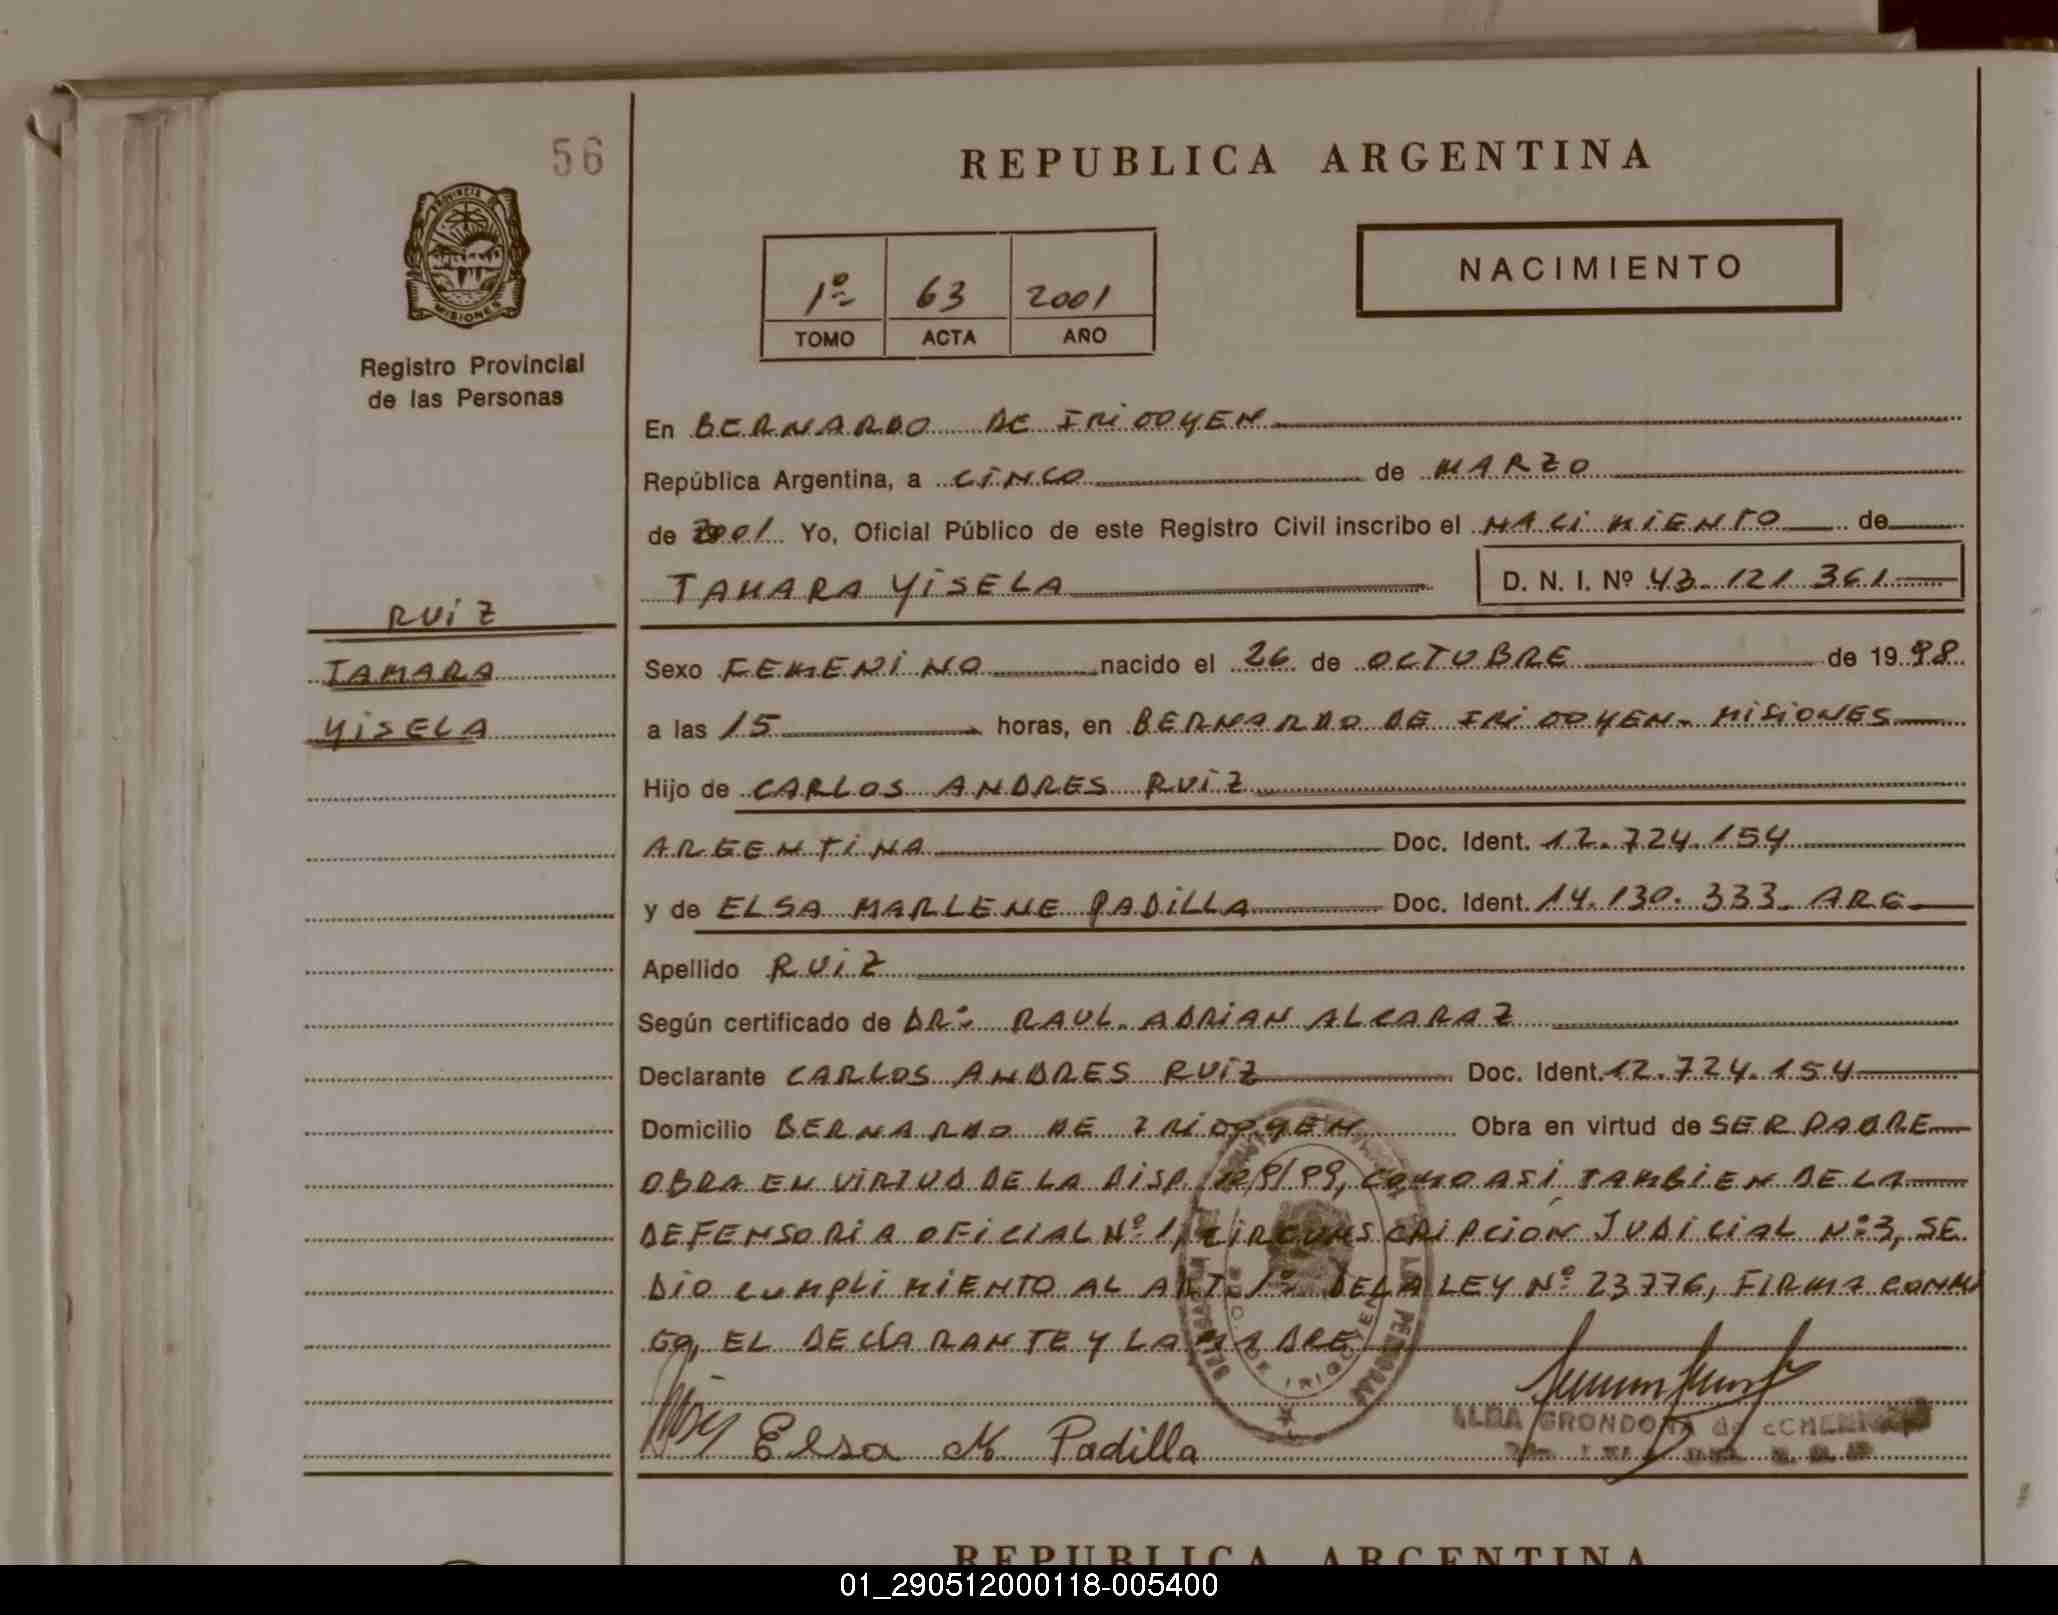 56
REPUBLICA ARGENTINA
PROVINCIA DE
MISIONES
Registro Provincial
de las Personas
NACIMIENTO
1º 63 2001
TOMO ACTA AÑO
En BERNARDO DE IRIGOYEN
República Argentina, a CINCO de MARZO
de 2001 Yo, Oficial Público de este Registro Civil inscribo el NACIMIENTO de
TAMARA YISELA D. N. I. Nº 43.121.361
RUIZ
TAMARA
YISELA
Sexo FEMENINO nacido el 26 de OCTUBRE de 1998
a las 15 horas, en BERNARDO DE IRIGOYEN - MISIONES
Hijo de CARLOS ANDRES RUIZ
ARGENTINA Doc. Ident. 12.724.154
y de ELSA MARLENE PADILLA Doc. Ident. 14.130.333 ARG.
Apellido RUIZ
Según certificado de DR: RAUL ADRIAN ALCARAZ
Declarante CARLOS ANDRES RUIZ Doc. Ident. 12.724.154
Domicilio BERNARDO DE IRIGOYEN Obra en virtud de SER PADRE
OBRA EN VIRTUD DE LA DISP. /99, COMO ASI TAMBIEN DE LA
DEFENSORIA OFICIAL Nº 1, CIRCUNSCRIPCION JUDICIAL Nº 3, SE
DIO CUMPLIMIENTO AL ART. 1º DE LA LEY Nº 23776, FIRMA CONMI
GO, EL DECLARANTE Y LA MADRE
DE IRIGOYEN
Elsa M Padilla
ALBA GRONDONA de
REPUBLICA ARGENTINA
01_290512000118-005400